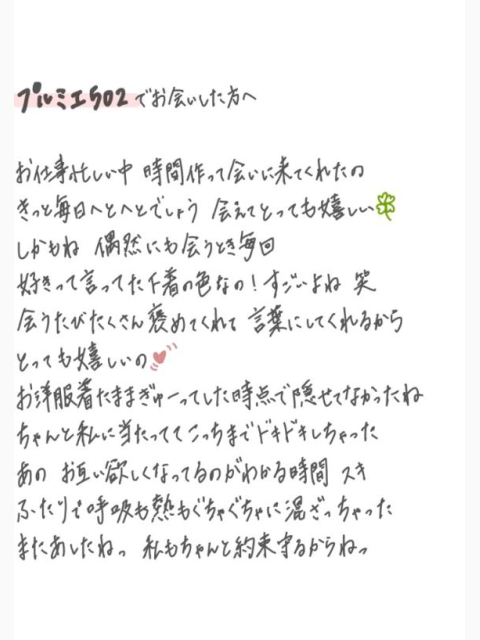 プルミエ502でお会いした方へ
お仕事忙しい中 時間作って会いに来てくれたの
きっと毎日へとへとでしょう 会えてとっても嬉しい🍀
しかもね 偶然にも会うとき毎回
好きって言ってた下着の色なの！すごいよね 笑
会うたびたくさん褒めてくれて 言葉にしてくれるから
とっても嬉しいの💕
お洋服着たままぎゅーってした時点で隠せてなかったね
ちゃんと私に当たっててこっちまでドキドキしちゃった
あの お互い欲しくなってるのがわかる時間 スキ
ふたりで呼吸も熱もぐちゃぐちゃに混ざっちゃった
またあしたねっ 私もちゃんと約束守るからねっ